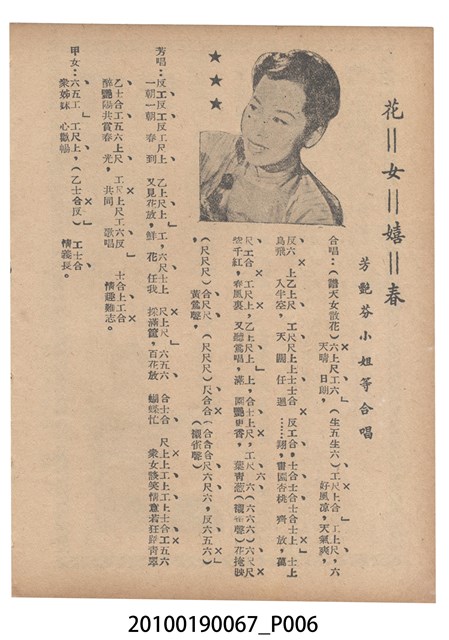 花‖女‖嬉‖春
芳艷芬小姐等合唱
合唱：（譜天女散花）六上尺工六（生五生六）工尺上合 工上尺，六
天晴 日朗， 好風凉，天氣爽，
反六 上乙上尺 工尺尺上上尺 反工合，士合士合士合士上 士上
鳥飛 入半空， 天 闊 任 遨……翔， 園杏桃 齊 放，萬
尺工合 工尺上，乙上尺上上，合士上尺，工尺六（六六六）六工尺
紫千紅，春風裏，又聽鶯唱，滿 園艷更香，葉青葱（雀聲）花掩映
（尺尺尺）合尺尺（尺尺尺）尺合合（合合合尺六尺六，反六五六）
黄鶯聲， （雀聲）
芳唱：反工反工反工反上 乙上尺上 工，六尺上士上 尺上尺上 六五六 合士合 尺上上工上工上士合工五六
一朝一朝 春 到 又見花放，鮮 花 任我 採滿筐，百花放 蝴蝶忙 衆女談笑情意若狂踩青草
乙士合工五六上尺 工尺上尺工六反 士合上工合
醉艷陽共賞春 光， 共同 歌唱 情誼難忘。
甲女：六五工 工尺上，（乙士合反）工士合
衆姊妹 心歡暢 情義長。
20100190067_P006